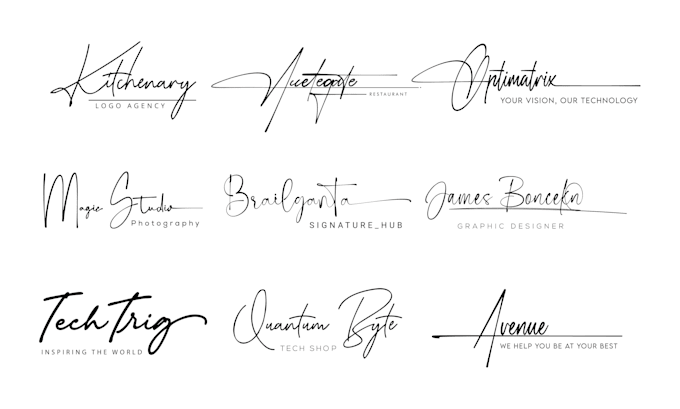 Kitchenary
LOGO AGENCY
RESTAURANT
Optimatrix
YOUR VISION, OUR TECHNOLOGY
Magic Studio
Photography
Brailganta
SIGNATURE_HUB
James
GRAPHIC DESIGNER
Tech Trig
INSPIRING THE WORLD
Quantum Byte
TECH SHOP
Avenue
WE HELP YOU BE AT YOUR BEST